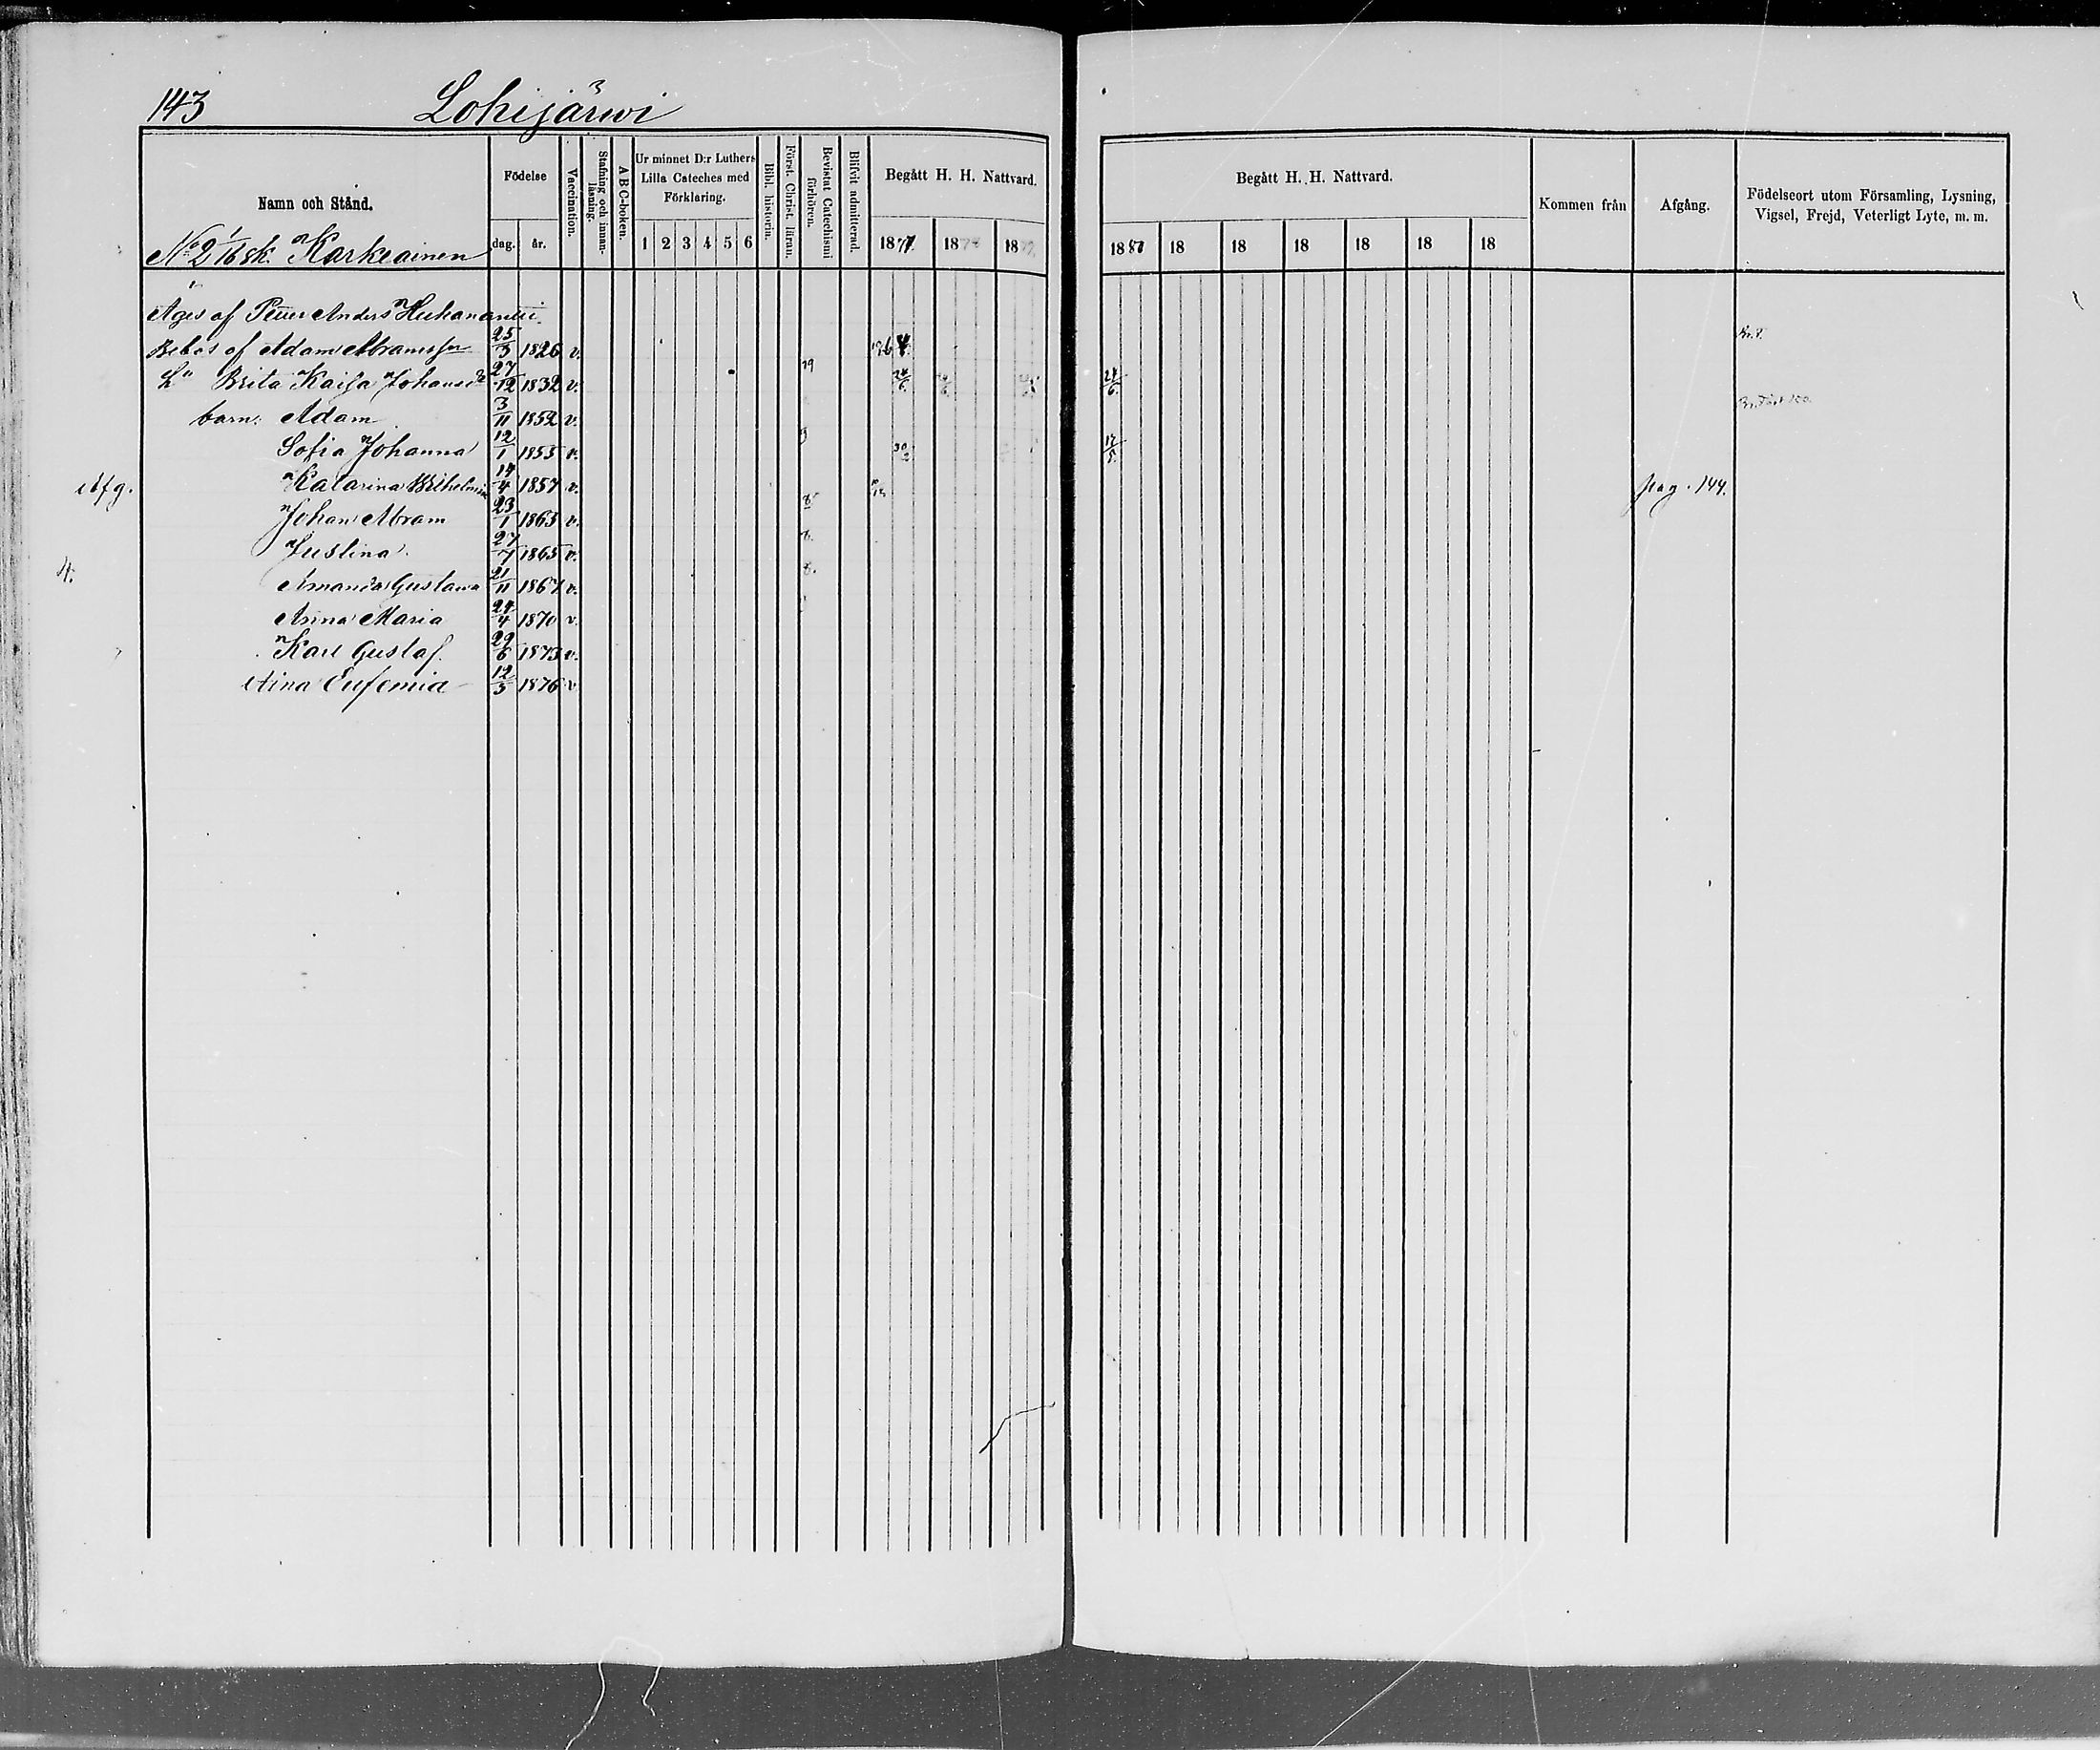 143 Lohijärwi
Namn och Stånd.
Födelse
dag. år.
Vaccination.
Stafning och innanläsning.
A B C-boken.
Ur minnet D:r Luthers Lilla Cateches med Förklaring.
1 2 3 4 5 6
Bibl. historin.
Först. Christ. läran.
Bevistat Catechismi förhören.
Blifvit admitterad.
Begått H. H. Nattvard.
1877. 1878 1879
Begått H. H. Nattvard.
1887 18 18 18 18 18 18
Kommen från
Afgång.
Födelseort utom Församling, Lysning, Vigsel, Frejd, Veterligt Lyte, m. m.
No 2 1/16 sk. Karkiainen
Äges af Petter Anders Huhanantti
Bebos af Adam Abramsson 25/3 1826 v.
H:u Brita Kaisa Johansdr 27/12 1832 v. 19 24/6 24/6
barn: Adam 3/11 1852 v.
Sofia Johanna 12/1 1855 v. 17/5
Afg. Katarina Wilhelmina 14/4 1857 v. pag. 144.
Johan Abram 23/1 1863 v. 8
Justina 27/7 1865 v. 8.
4. Amanda Gustava 21/11 1867 v. 8.
Anna Maria 24/4 1870 v.
Karl Gustaf 29/6 1873 v.
Aina Eufemia 12/3 1876 v